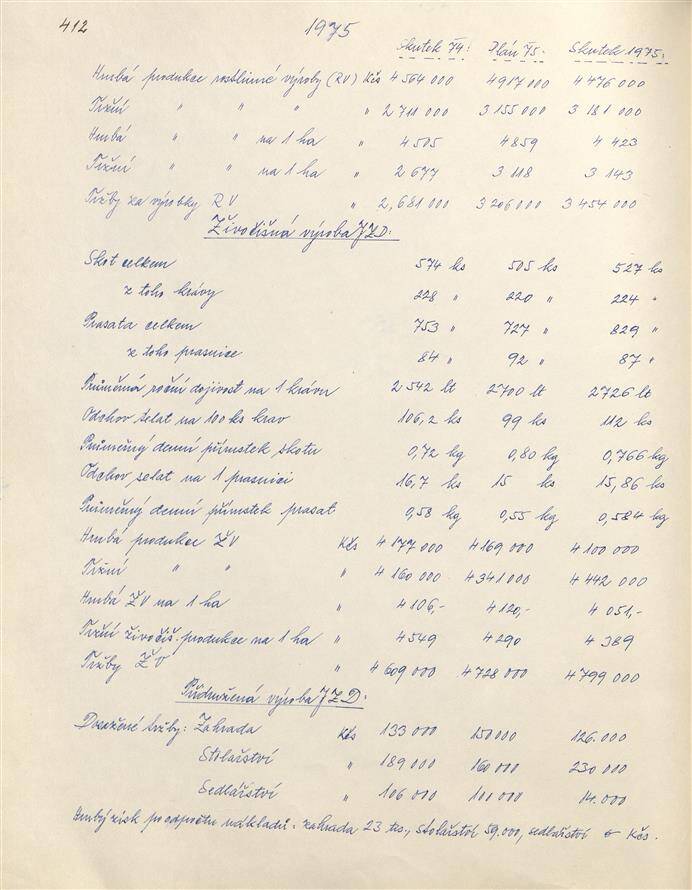 412
1975
Skutek 74: Plán 75: Skutek 1975:
Hrubá produkce rostlinné výroby (RV) Kčs 4 564 000 4 917 000 4 476 000
Tržní " " " " 2 711 000 3 155 000 3 181 000
Hrubá " " na 1 ha " 4 505 4 859 4 423
Tržní " " na 1 ha " 2 677 3 118 3 143
Tržby za výrobky RV " 2,681 000 3 206 000 3 454 000
Živočišná výroba JZD:
Skot celkem 574 ks 505 ks 527 ks
z toho krávy 228 " 220 " 224 "
Prasata celkem 753 " 727 " 829 "
z toho prasnice 84 " 92 " 87 "
Průměrná roční dojivost na 1 krávu 2 542 lt 2700 lt 2726 lt
Odchov telat na 100 ks krav 106,2 ks 99 ks 112 ks
Průměrný denní přírůstek skotu 0,72 kg 0,80 kg 0,766 kg
Odchov selat na 1 prasnici 16,7 ks 15 ks 15,86 ks
Průměrný denní přírůstek prasat 0,58 kg 0,55 kg 0,584 kg
Hrubá produkce ŽV Kčs 4 177 000 4 169 000 4 100 000
Tržní " " " 4 160 000 4 341 000 4 442 000
Hrubá ŽV na 1 ha " 4 106,- 4 120,- 4 051,-
Tržní živočiš. produkce na 1 ha " 4 549 4 290 4 389
Tržby ŽV " 4 609 000 4 728 000 4 799 000
Přidružená výroba JZD:
Dosažené tržby: Zahrada Kčs 133 000 150 000 126.000
Stolařství " 189 000 160 000 230 000
Sedlářství " 106 000 100 000 14.000
Hrubý zisk po odpočtu nákladů: zahrada 23 tis., stolařství 59.000, sedlářství Kčs.